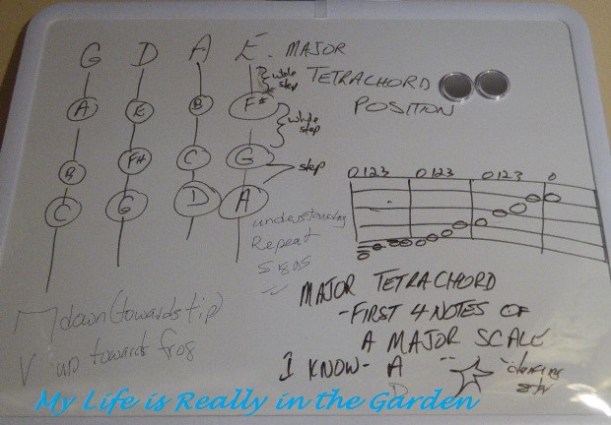 G D A E - MAJOR
TETRACHORD
POSITION
whole
step
A E B F#
whole
step
B F# C G
step
C G D A
0123 0123 0123 0
understanding
Repeat
signs
MAJOR TETRACHORD
- FIRST 4 NOTES OF
A MAJOR SCALE
down (towards tip)
V up towards frog
I KNOW - A
D
My Life is Really in the Garden